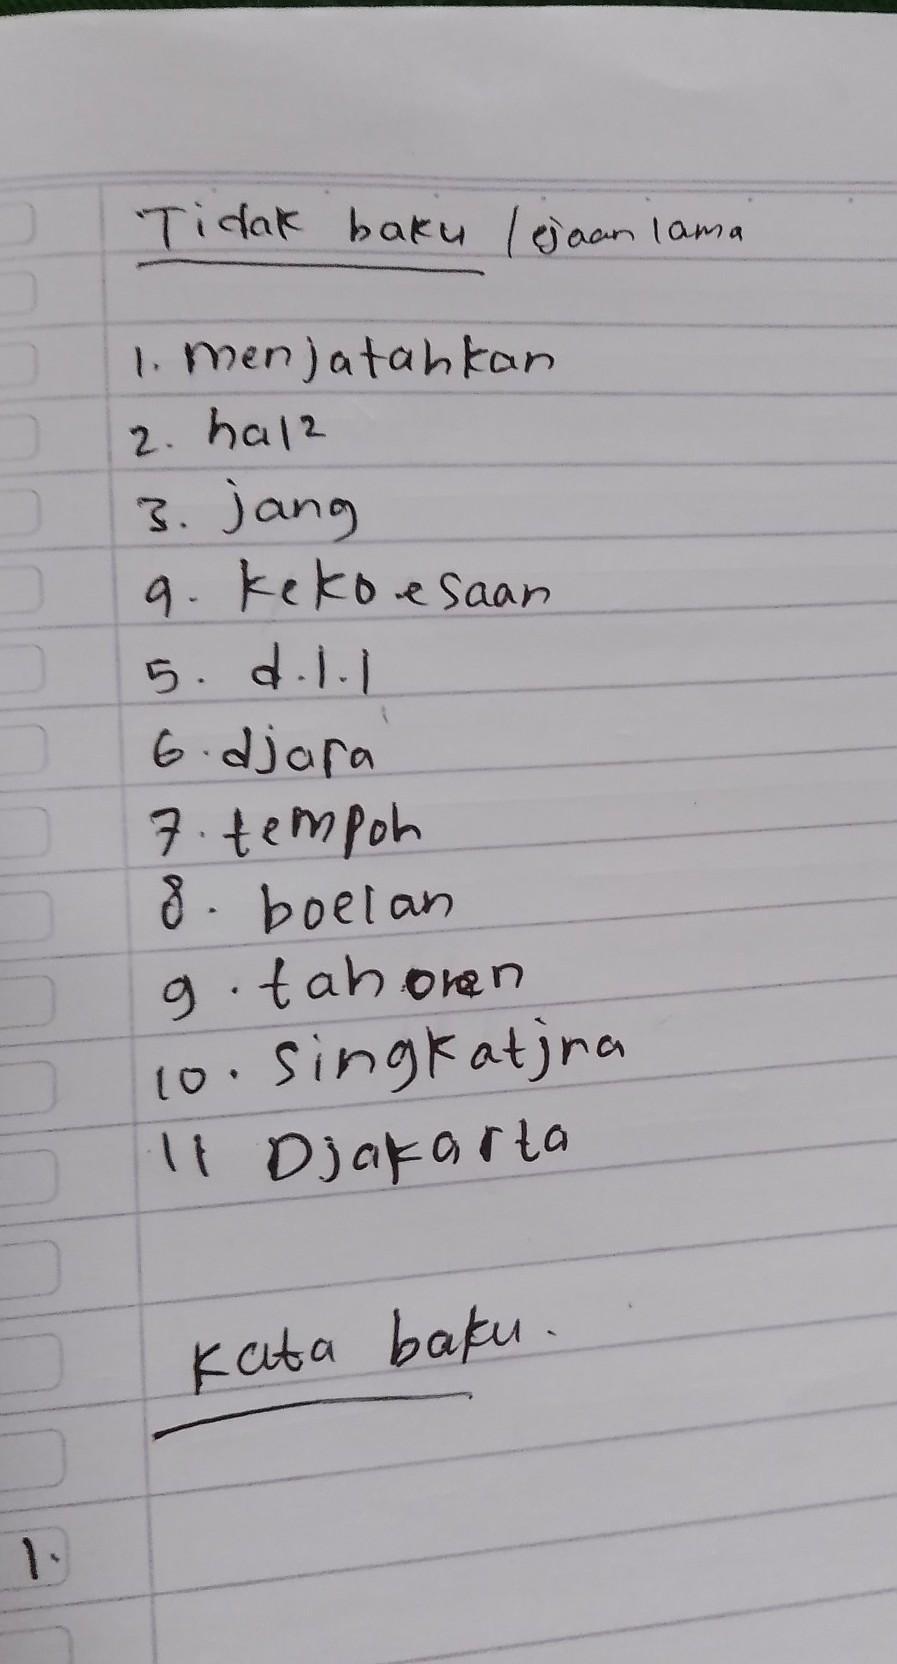 Tidak baku / ejaan lama
1. menjatahkan
2. hal2
3. jang
4. kekoesaan
5. d.l.l
6. djara
7. tempoh
8. boelan
9. tahoren
10. singkatjna
11 Djakarta
Kata baku.
1.